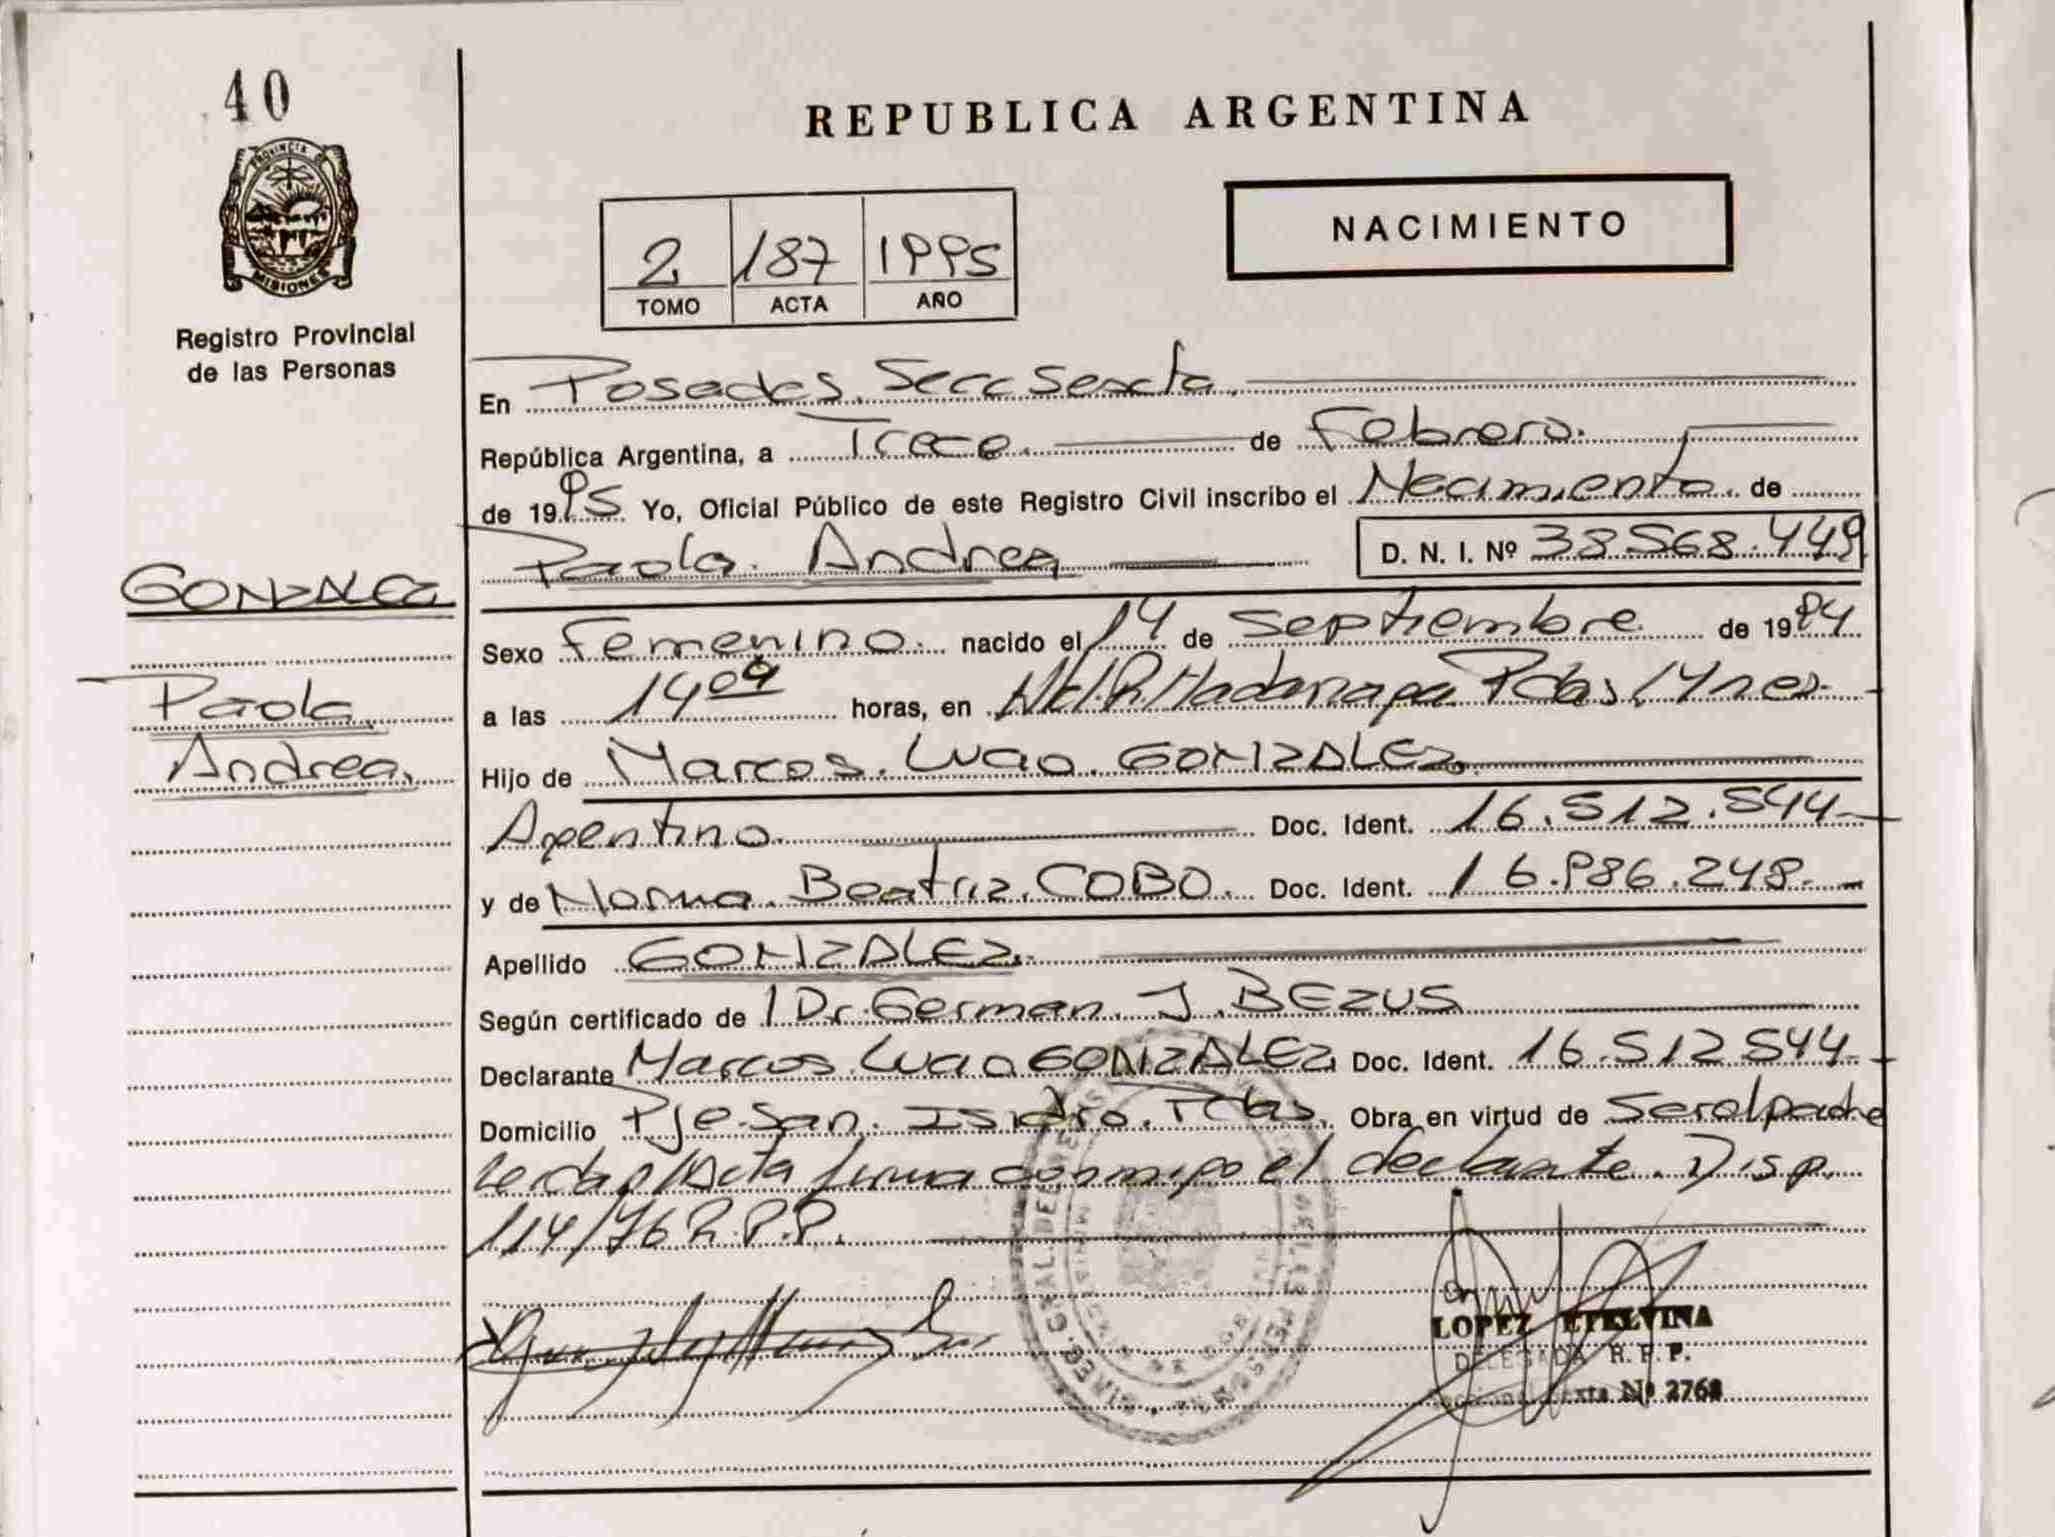 40
PROVINCIA DE
MISIONES
Registro Provincial
de las Personas
REPUBLICA ARGENTINA
2 187 1995
TOMO ACTA AÑO
NACIMIENTO
En Posadas. Secc Sexta.
República Argentina, a Trece. de Febrero.
de 1995 Yo, Oficial Público de este Registro Civil inscribo el Nacimiento. de
Paola. Andrea D. N. I. Nº 38.568.449
GONZALEZ
Paola
Andrea.
Sexo Femenino. nacido el 14 de Septiembre. de 1994
a las 14 09 horas, en Madariaga Pdas, Mnes.
Hijo de Marcos. Lucio. GONZALEZ.
Argentino. Doc. Ident. 16.512.544
y de Norma. Beatriz. COBO. Doc. Ident. 16.986.248.
Apellido GONZALEZ.
Según certificado de Dr. German. J. BEZUS
Declarante Marcos. Lucio GONZALEZ Doc. Ident. 16.512.544
Domicilio Pje. San. Isidro. Pdas. Obra en virtud de Ser el padre
Leida el Acta firma conmigo el declarante. Disp.
114/76 R.P.P.
LOPEZ ETELVINA
DELEGADA R. P. P.
Seccional Sexta Nº 2768